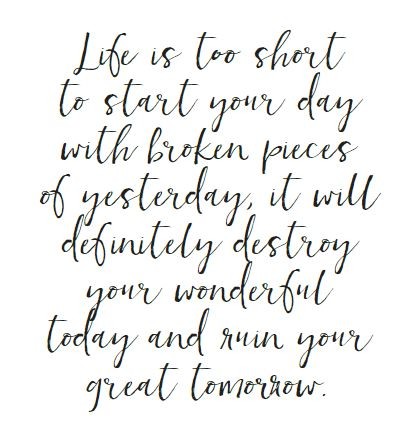 Life is too short
to start your day
with broken pieces
of yesterday, it will
definitely destroy
your wonderful
today and ruin your
great tomorrow.